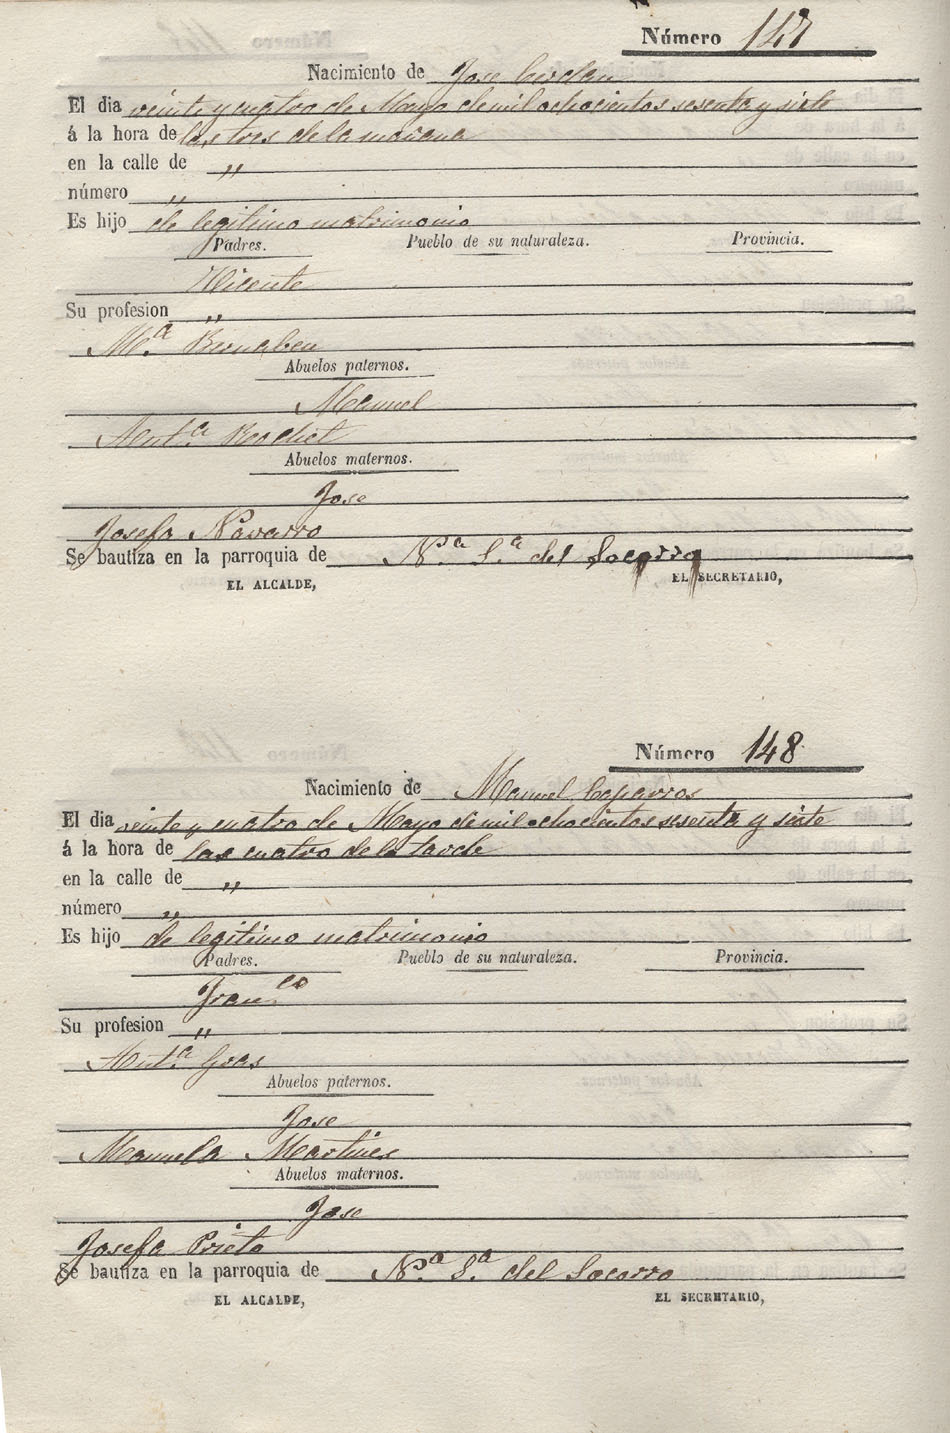 Número 147
Nacimiento de Jose Cerdan
El dia veinte y cuatro de Mayo de mil ochocientos sesenta y siete
á la hora de las tres de la mañana
en la calle de „
número „
Es hijo de legitimo matrimonio
Padres. Pueblo de su naturaleza. Provincia.
Vicente
Su profesion „
Mª Bernabeu
Abuelos paternos.
Manuel
Antª
Abuelos maternos.
Jose
Josefa Navarro
Se bautiza en la parroquia de Nª Sª del Socorro
EL ALCALDE, EL SECRETARIO,
Número 148
Nacimiento de Manuel Caparros
El dia veinte y cuatro de Mayo de mil ochocientos sesenta y siete
á la hora de las cuatro de la tarde
en la calle de „
número „
Es hijo de legitimo matrimonio
Padres. Pueblo de su naturaleza. Provincia.
Franco
Su profesion „
Antª Gras
Abuelos paternos.
Jose
Manuela Martinez
Abuelos maternos.
Jose
Josefa Prieto
Se bautiza en la parroquia de Nª Sª del Socorro
EL ALCALDE, EL SECRETARIO,